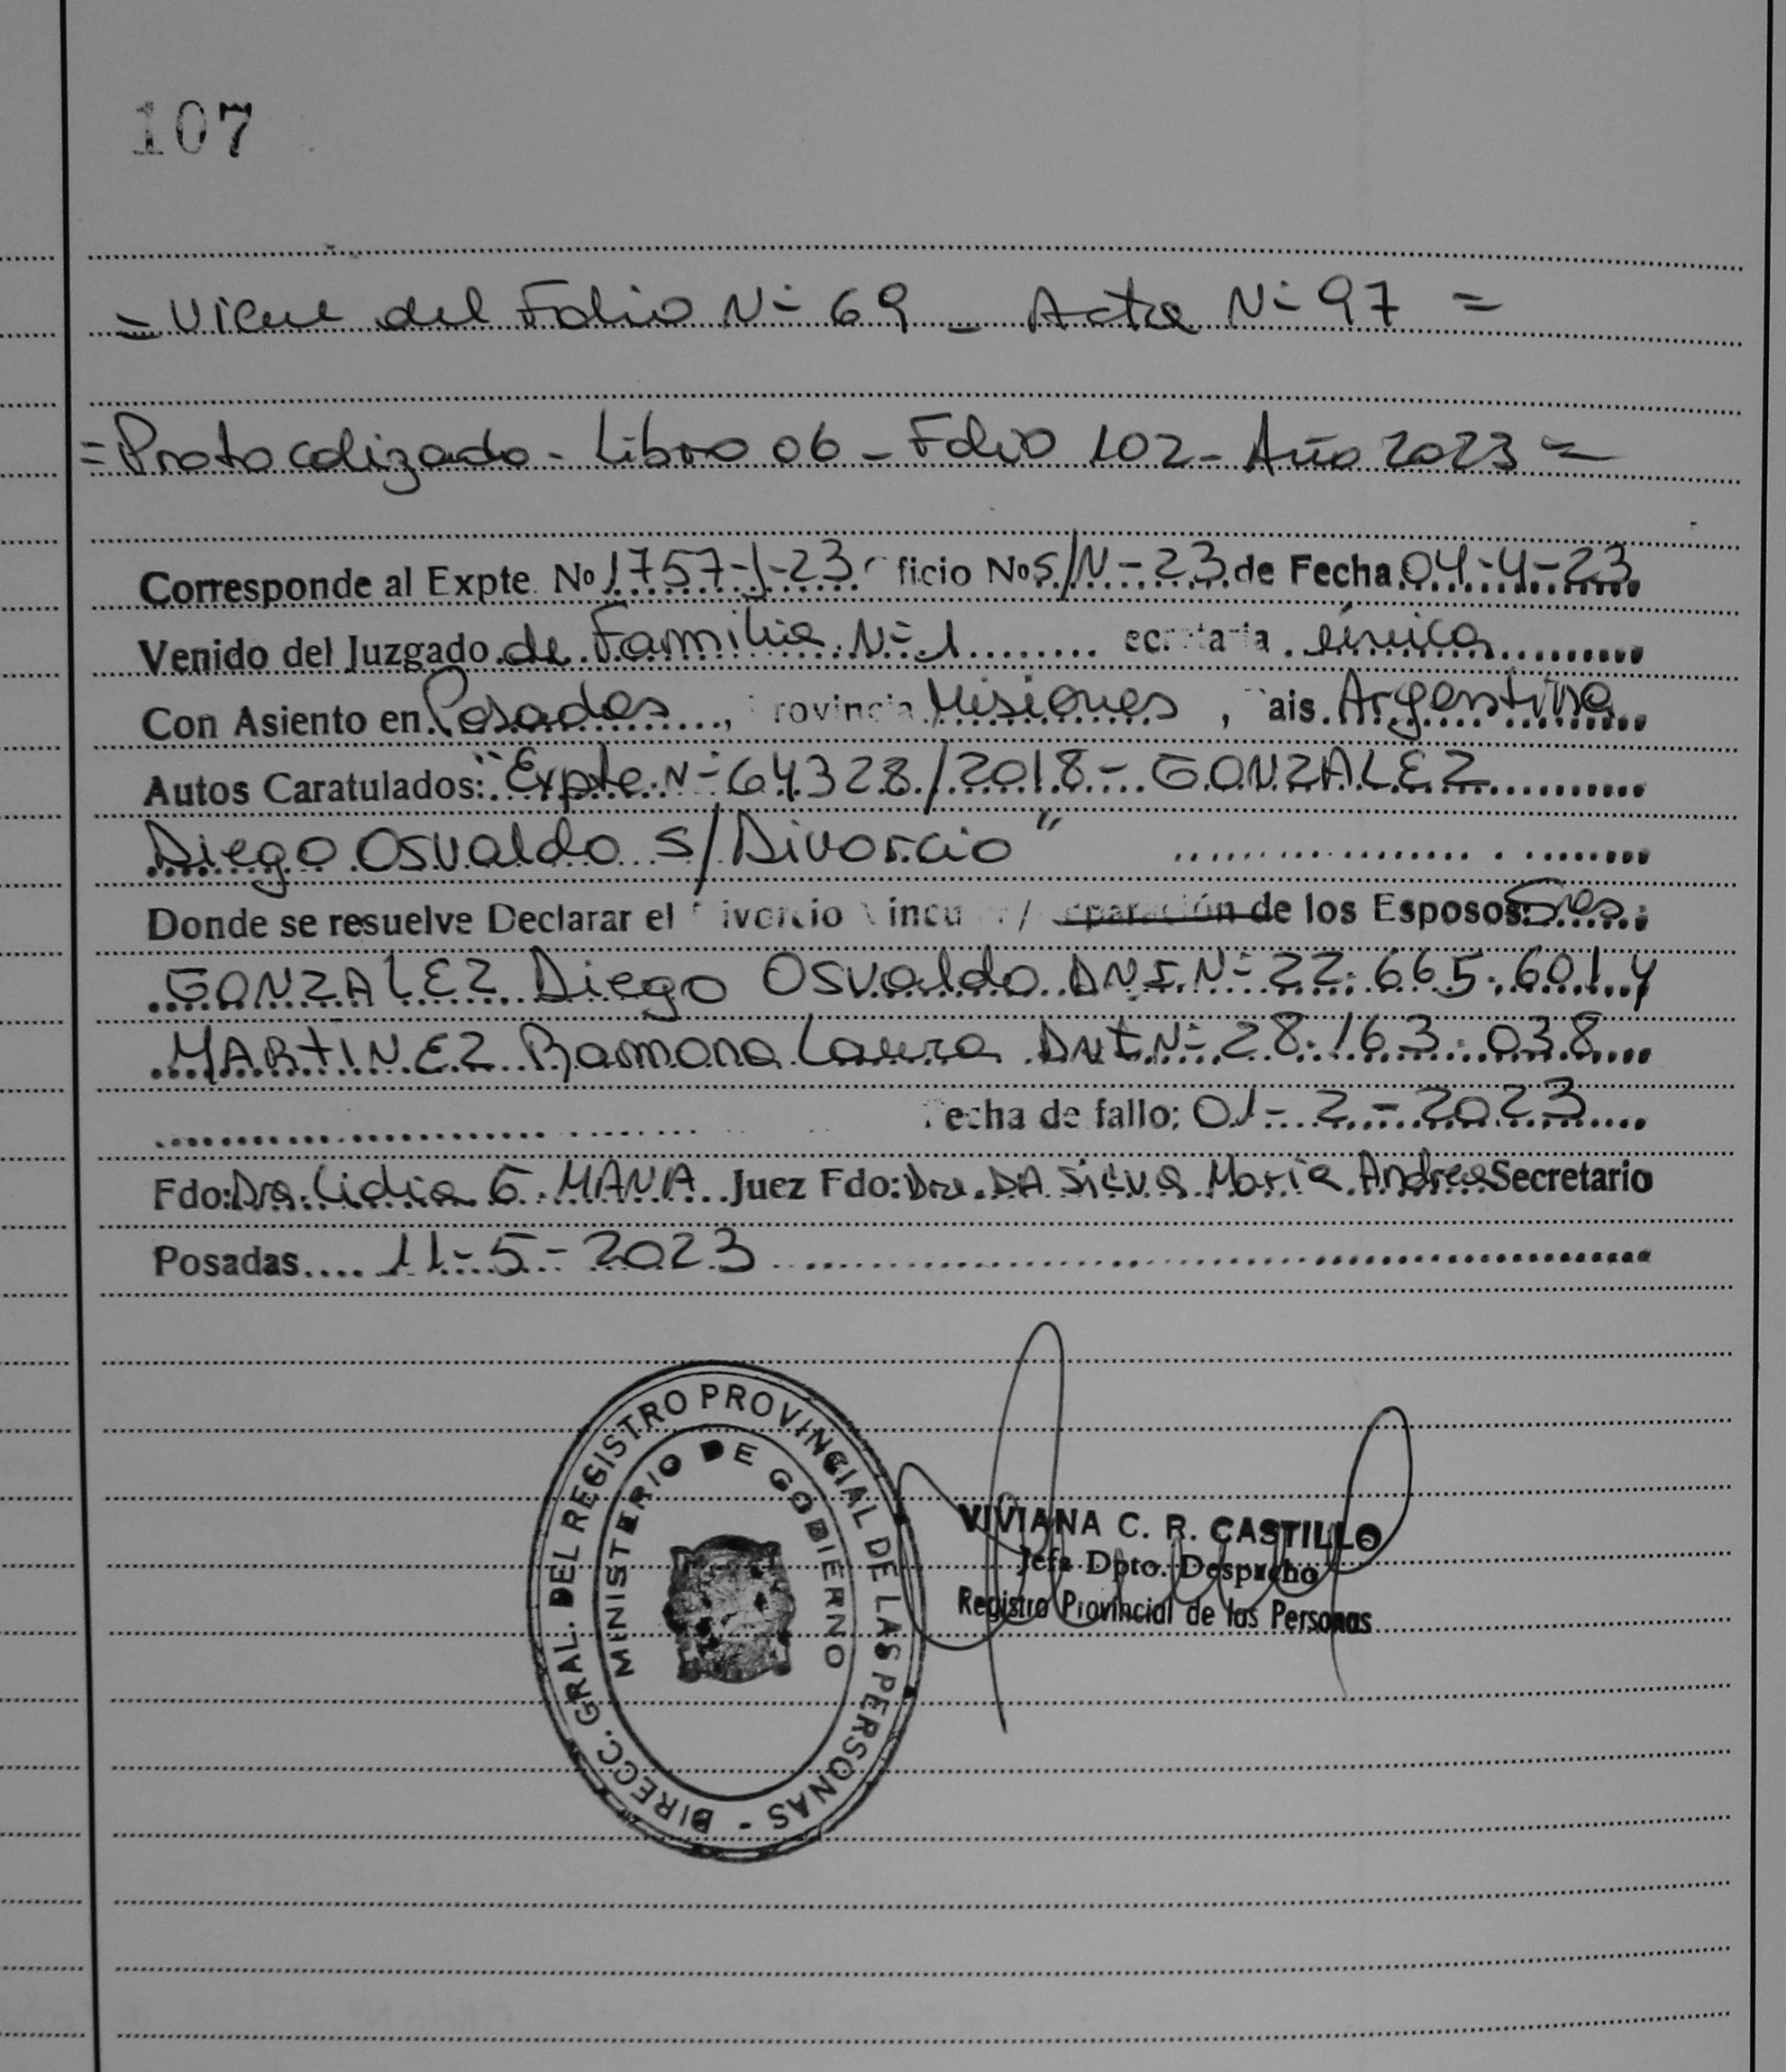 107
= Viene del Folio Nº 69 - Acta Nº 97 =
= Protocolizado - Libro 06 - Folio 102 - Año 2023 =
Corresponde al Expte. No 1757-J-23 ficio No S/N-23 de Fecha 04-4-23
Venido del Juzgado de Familia Nº 1 ecretaria única
Con Asiento en Posadas, rovincia Misiones, ais Argentina
Autos Caratulados: "Expte Nº 64328/2018 - GONZALEZ
Diego Osvaldo s/Divorcio"
Donde se resuelve Declarar el ivorcio Vincu / eparación de los Esposos: Sres.
GONZALEZ Diego Osvaldo DNI Nº 22.665.601 y
MARTINEZ Ramona Laura DNI Nº 28.163.038
echa de fallo: 01-2-2023
Fdo: Dra. Lidia G. MANA Juez Fdo: Dra. DA SILVA María Andrea Secretario
Posadas 11-5-2023
DIRECC. GRAL. DEL REGISTRO PROVINCIAL DE LAS PERSONAS -
MINISTERIO DE GOBIERNO
VIVIANA C. R. CASTILLO
Jefa Dpto. Despacho
Registro Provincial de las Personas